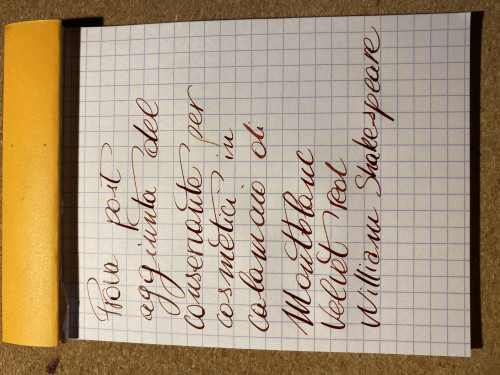 Prova post
aggiunta del
conservante per
cosmetici in
calamaio di
Montblanc
Velvet Red
William Shakespeare